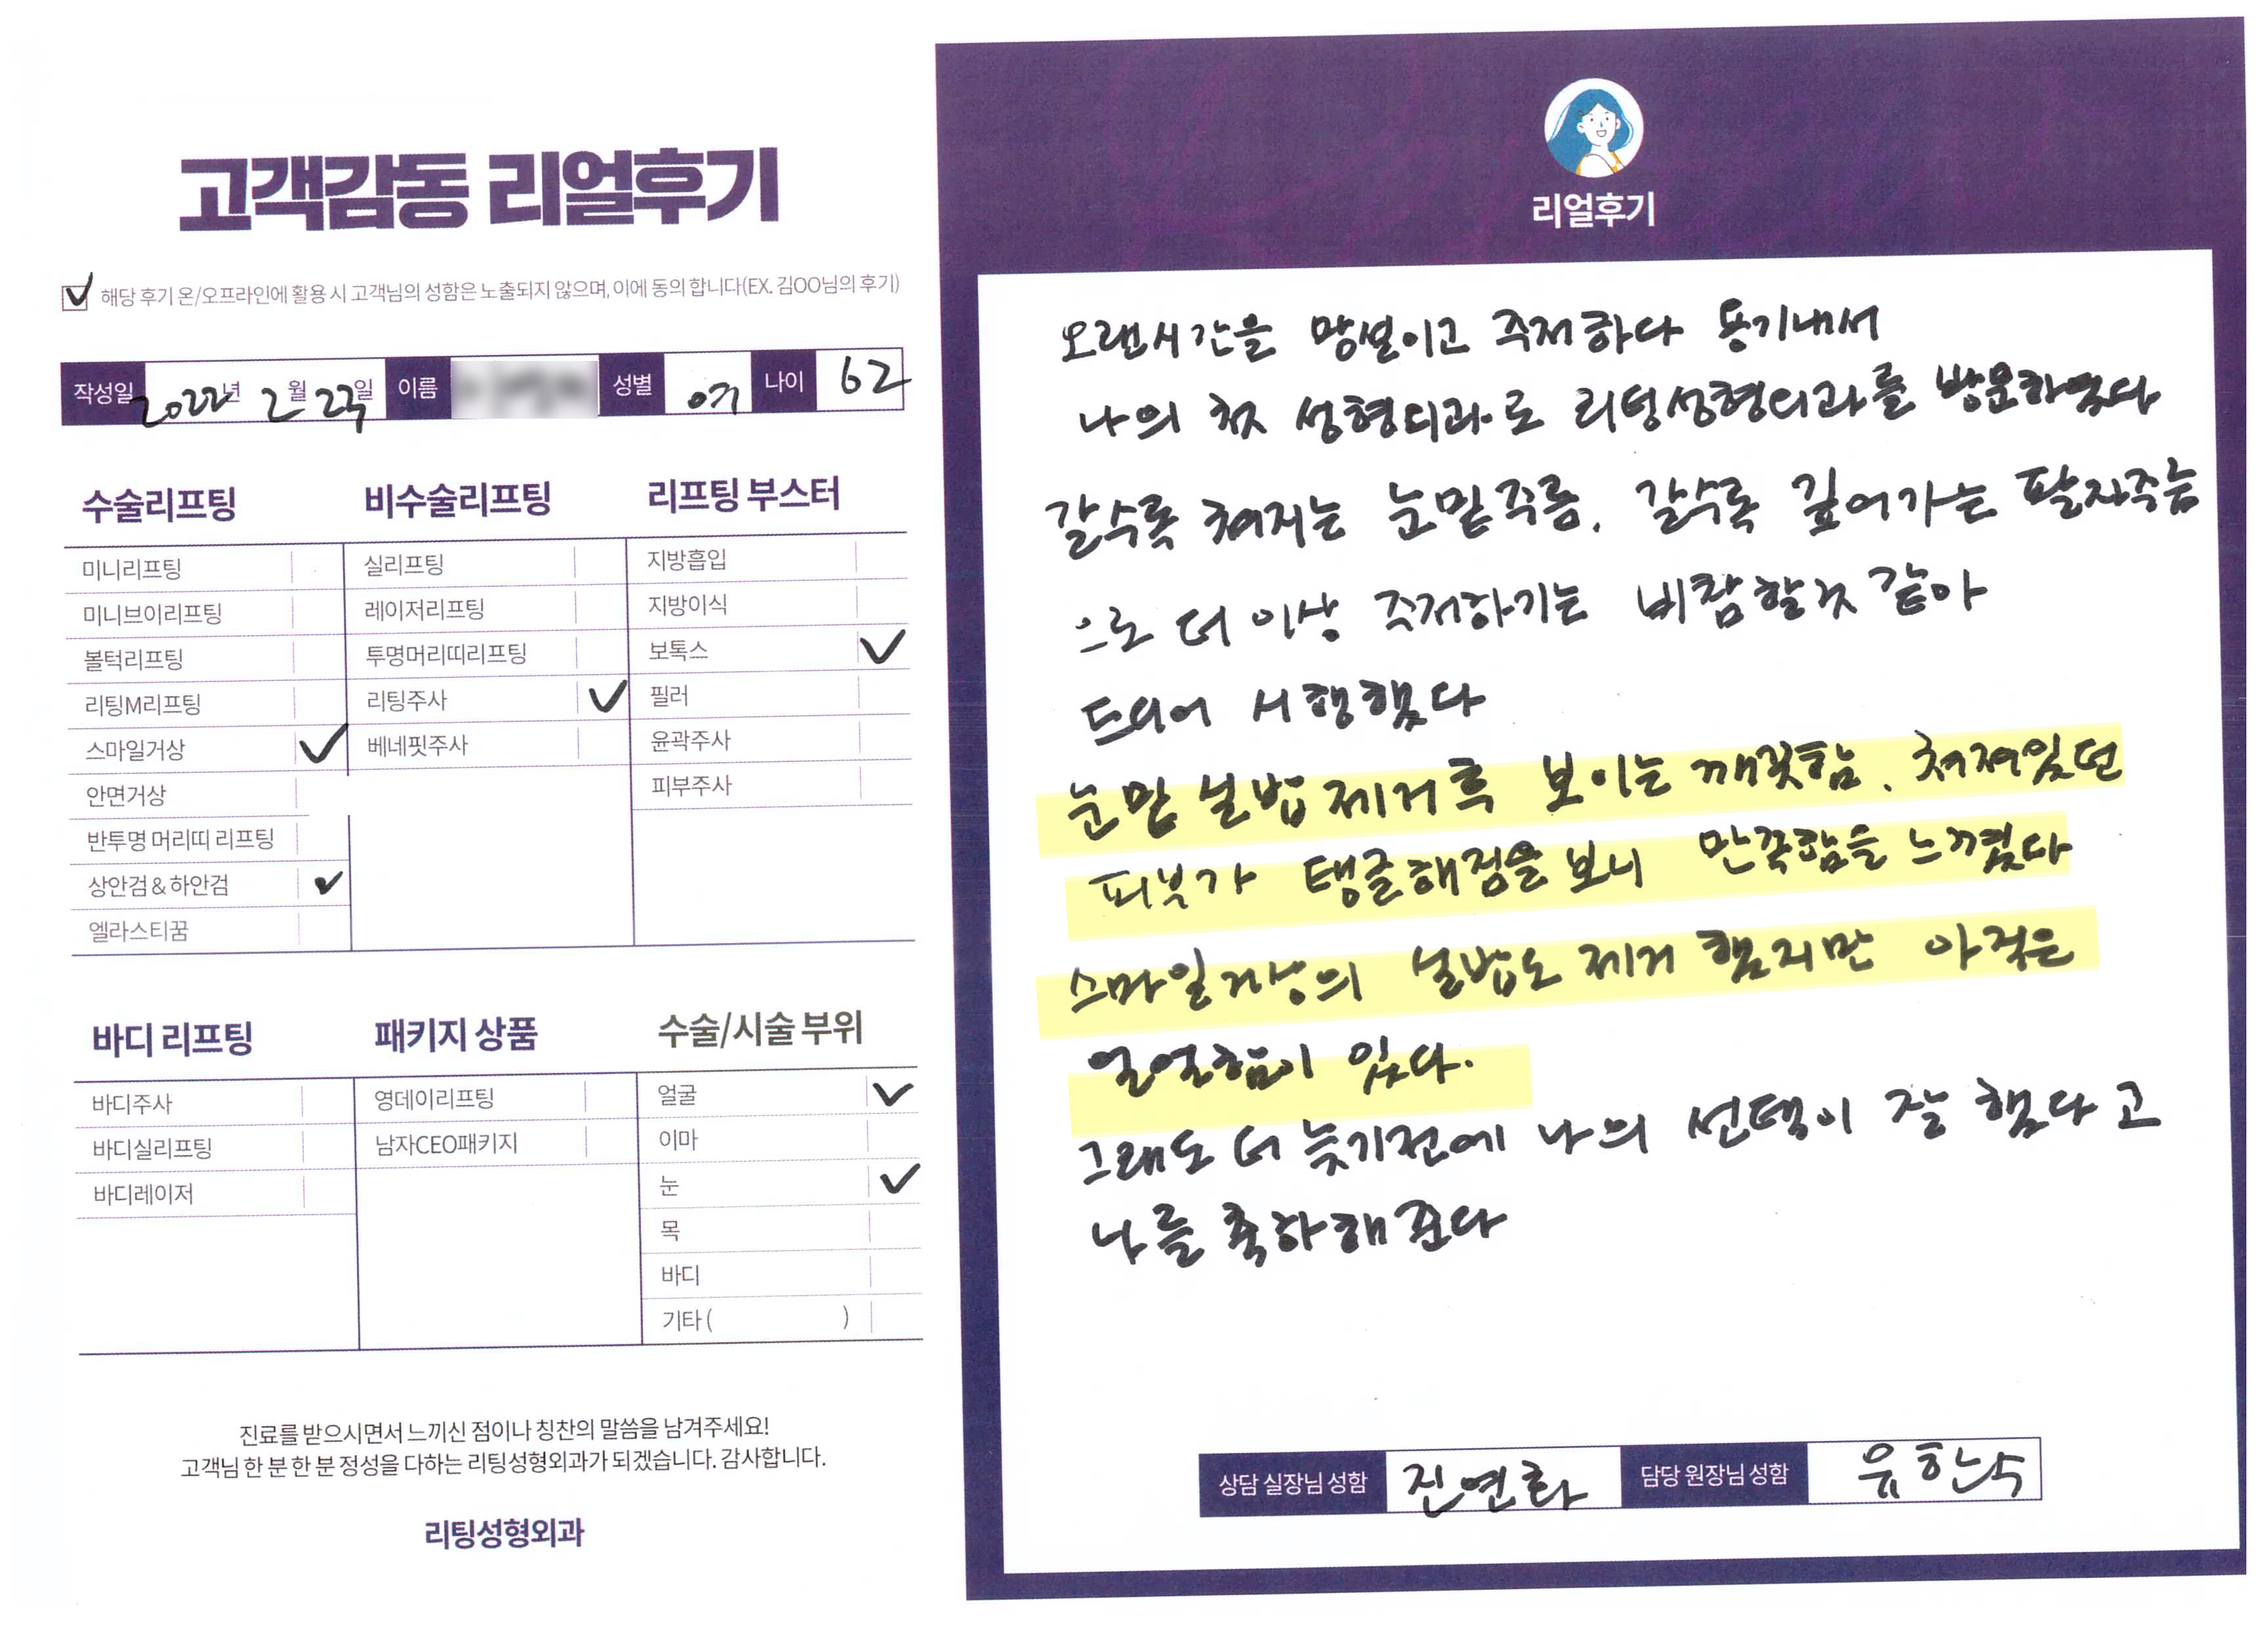 고객감동 리얼후기
해당 후기 온/오프라인에 활용 시 고객님의 성함은 노출되지 않으며, 이에 동의 합니다(EX. 김OO님의 후기)
작성일 2022년 2월 23일 이름 성별 여 나이 62
수술리프팅
미니리프팅
미니브이리프팅
볼턱리프팅
리팅M리프팅
스마일거상
안면거상
반투명 머리띠 리프팅
상안검&하안검
엘라스티꿈
비수술리프팅
실리프팅
레이저리프팅
투명머리띠리프팅
리팅주사
베네핏주사
리프팅 부스터
지방흡입
지방이식
보톡스
필러
윤곽주사
피부주사
바디 리프팅
바디주사
바디실리프팅
바디레이저
패키지 상품
영데이리프팅
남자CEO패키지
수술/시술 부위
얼굴
이마
눈
목
바디
기타( )
진료를 받으시면서 느끼신 점이나 칭찬의 말씀을 남겨주세요!
고객님 한 분 한 분 정성을 다하는 리팅성형외과가 되겠습니다. 감사합니다.
리팅성형외과
리얼후기
오랜시간을 망설이고 주저하다 용기내서
나의 첫 성형외과로 리팅성형외과를 방문하였다
갈수록 쳐지는 눈밑주름. 갈수록 깊어가는 팔자주름
으로 더 이상 주저하기는 비참할것 같아
드디어 시행했다
눈밑 실밥 제거후 보이는 깨끗함. 쳐져있던
피부가 탱글해짐을 보니 만족함을 느꼈다
스마일거상의 실밥도 제거 했지만 아직은
얼얼함이 있다.
그래도 더 늦기전에 나의 선택이 잘 했다고
나를 축하해준다
상담 실장님 성함 진연화 담당 원장님 성함 유한수